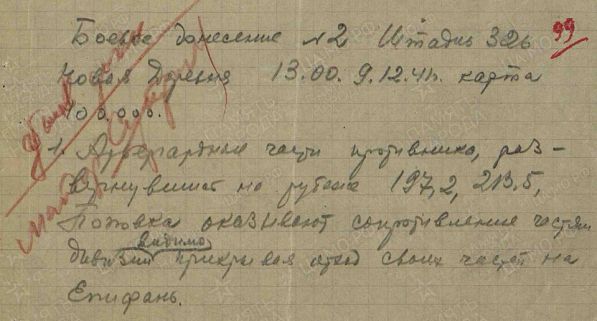 99
Боевое донесение №2 Штадив 326
Новая Деревня 13.00. 9.12.41. карта
100.000.
1. Арьергардные части противника, раз-
вернувшись на рубеже 197,2, 213.5,
Поповка оказывают сопротивление частям
видимо
дивизии прикрывая отход своих частей на
Епифань.